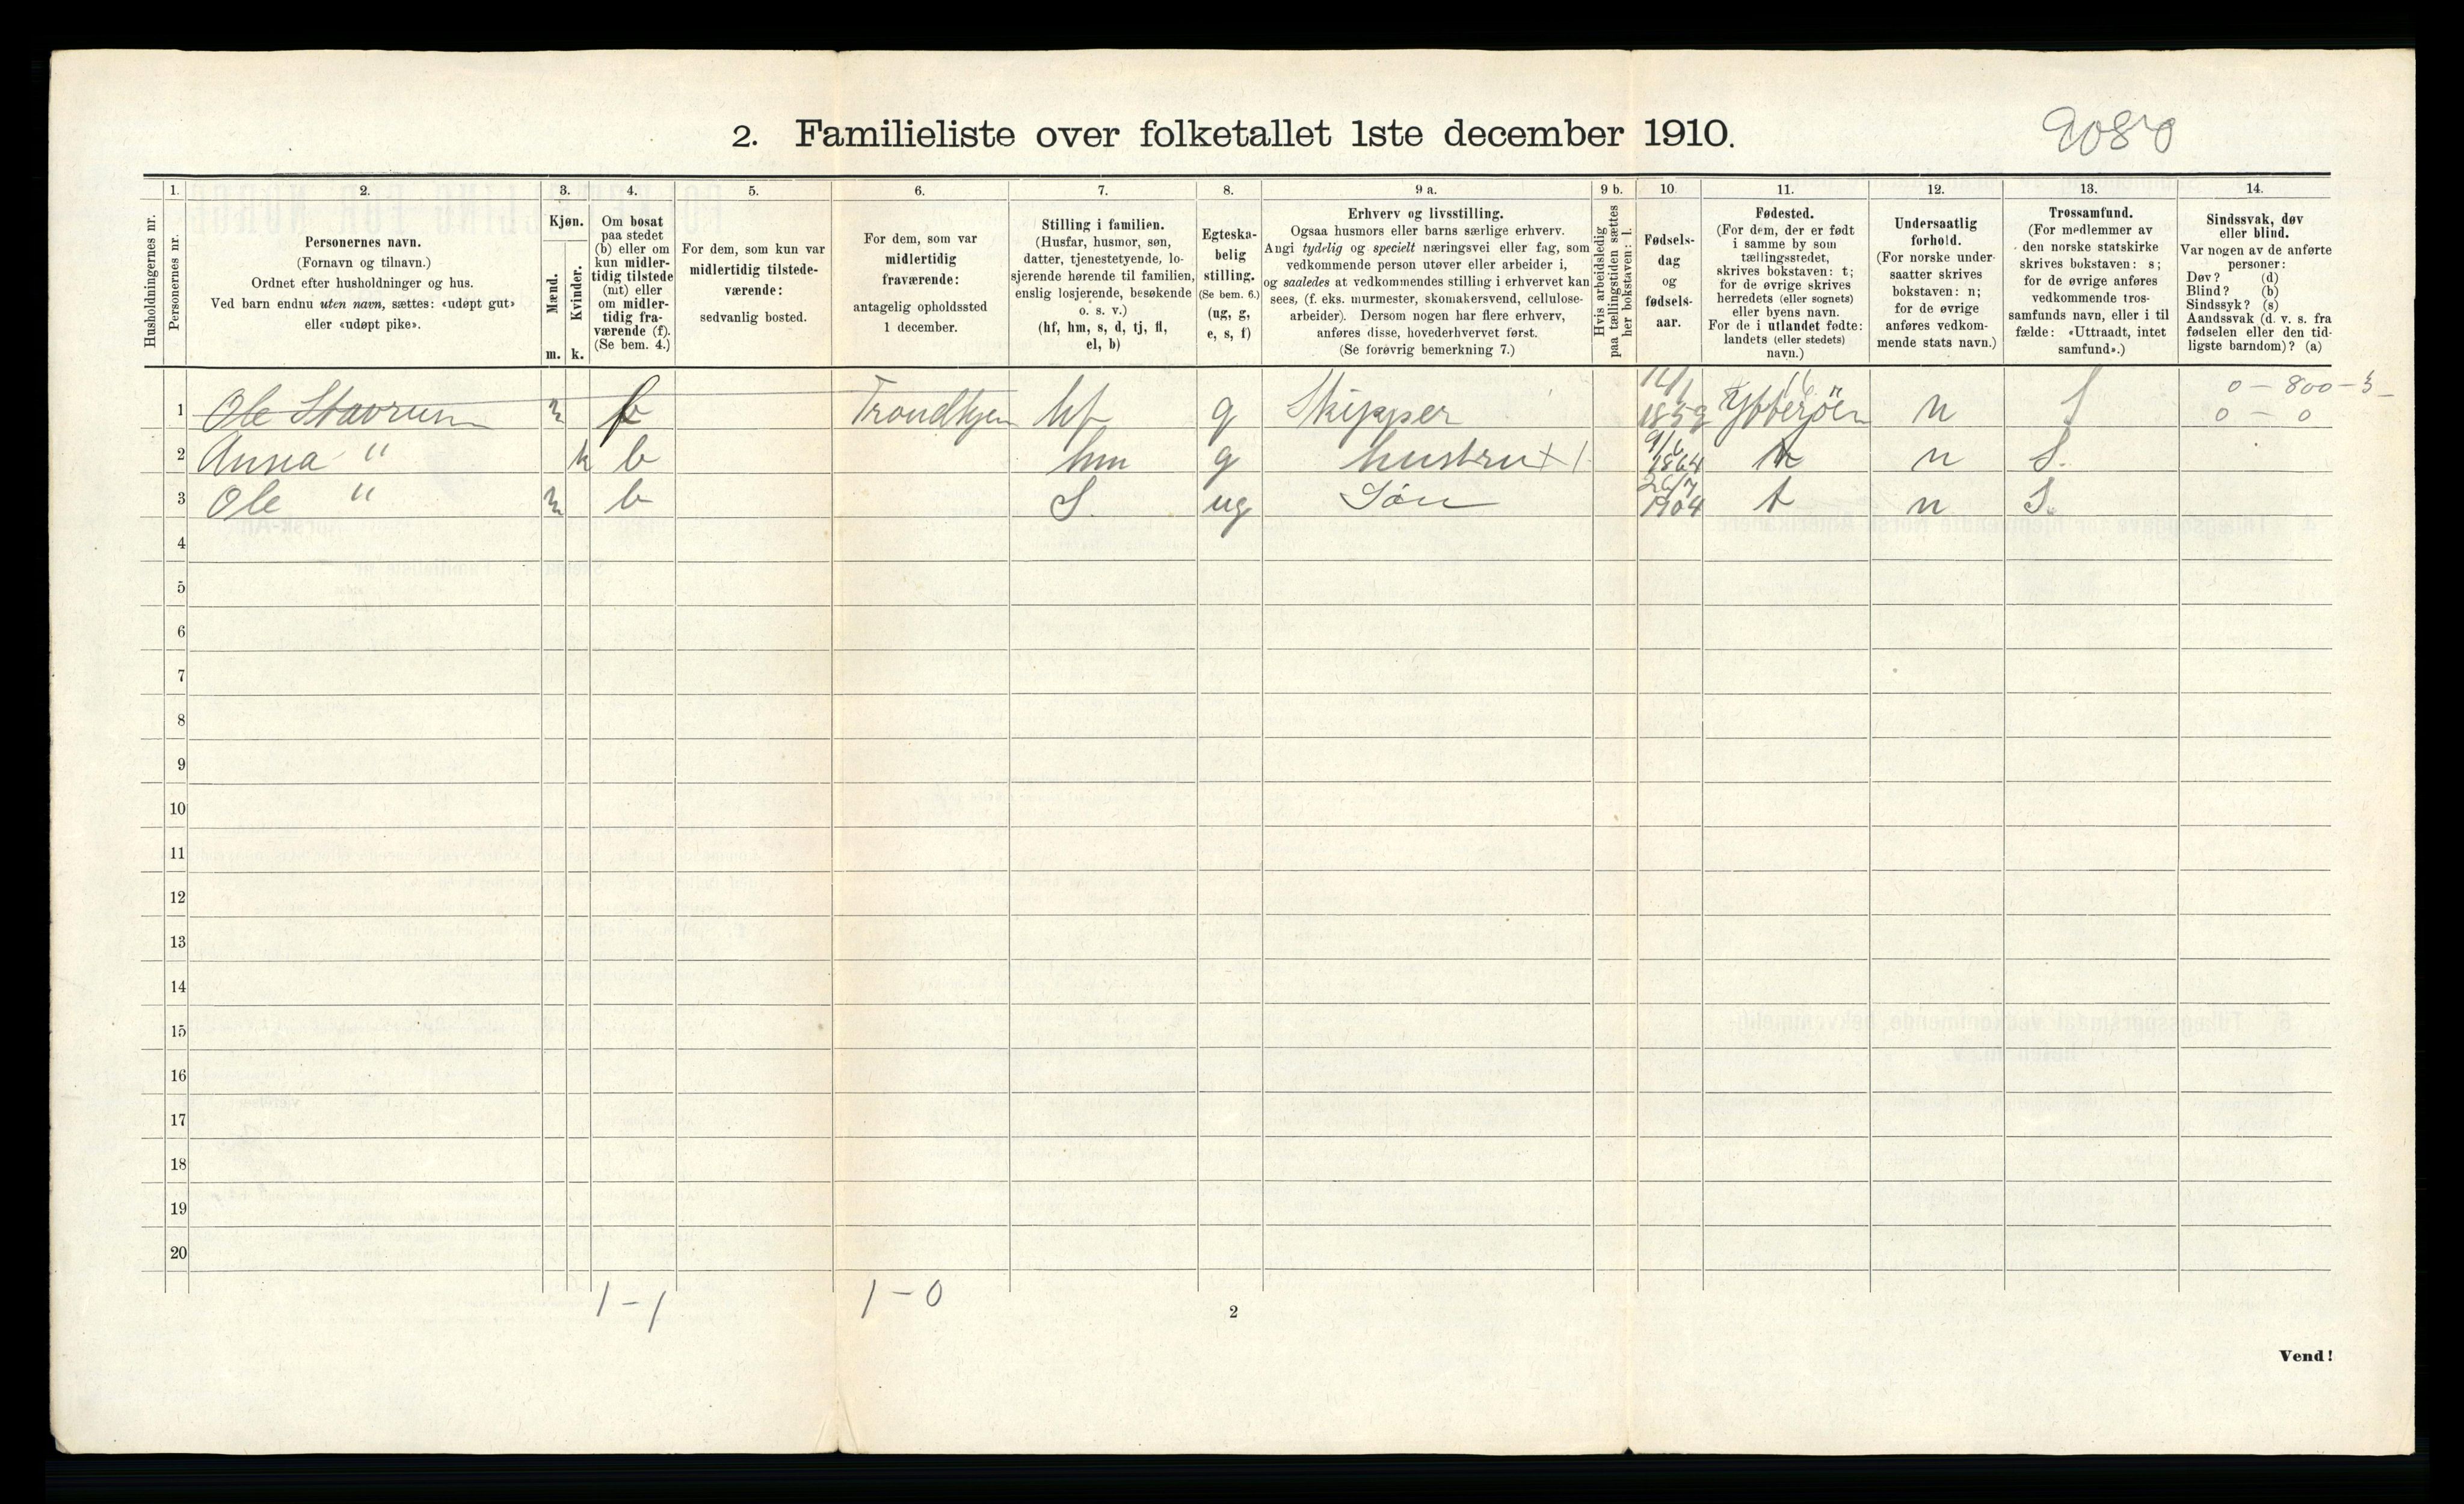 2. Familieliste over folketallet 1ste december 1910.
9080
1. 2. 3. 4. 5. 6. 7. 8. 9 a. 9 b. 10. 11. 12. 13. 14.
Husholdningernes nr.
Personernes nr.
Personernes navn.
(Fornavn og tilnavn.)
Ordnet efter husholdninger og hus.
Ved barn endnu uten navn, sættes: «udøpt gut»
eller «udøpt pike».
Kjøn.
Mænd.
Kvinder.
m. k.
Om bosat
paa stedet
(b) eller om
kun midler-
tidig tilstede
(mt) eller
om midler-
tidig fra-
værende (f).
(Se bem. 4.)
For dem, som kun var
midlertidig tilstede-
værende:
sedvanlig bosted.
For dem, som var
midlertidig
fraværende:
antagelig opholdssted
1 december.
Stilling i familien.
(Husfar, husmor, søn,
datter, tjenestetyende, lo-
sjerende hørende til familien,
enslig losjerende, besøkende
o. s. v.)
(hf, hm, s, d, tj, fl,
el, b)
Egteska-
belig
stilling.
(Se bem. 6.)
(ug, g,
e, s, f)
Erhverv og livsstilling.
Ogsaa husmors eller barns særlige erhverv.
Angi tydelig og specielt næringsvei eller fag, som
vedkommende person utøver eller arbeider i,
og saaledes at vedkommendes stilling i erhvervet kan
sees, (f. eks. murmester, skomakersvend, cellulose-
arbeider). Dersom nogen har flere erhverv,
anføres disse, hovederhvervet først.
(Se forøvrig bemerkning 7.)
Hvis arbeidsledig
paa tællingstiden sættes
her bokstaven: l.
Fødsels-
dag
og
fødsels-
aar.
Fødested.
(For dem, der er født
i samme by som
tællingsstedet,
skrives bokstaven: t;
for de øvrige skrives
herredets (eller sognets)
eller byens navn.
For de i utlandet fødte:
landets (eller stedets)
navn.)
Undersaatlig
forhold.
(For norske under-
saatter skrives
bokstaven: n;
for de øvrige
anføres vedkom-
mende stats navn.)
Trossamfund.
(For medlemmer av
den norske statskirke
skrives bokstaven: s;
for de øvrige anføres
vedkommende tros-
samfunds navn, eller i til
fælde: «Uttraadt, intet
samfund».)
Sindssvak, døv
eller blind.
Var nogen av de anførte
personer:
Døv? (d)
Blind? (b)
Sindssyk? (s)
Aandssvak (d. v. s. fra
fødselen eller den tid-
ligste barndom)? (a)
1 Ole Stavrum m f Trondhjem hf g Skipper 1859 Ytterøen n S 0 – 800 – 3 –
0 – 0
2 Anna " k b hm g hustru + 1 9/6 1864 t n S.
3 Ole " m b S. ug Søn 26/7 1904 t n S.
4
5
6
7
8
9
10
11
12
13
14
15
16
17
18
19
20
1 – 1 1 – 0
2
Vend!